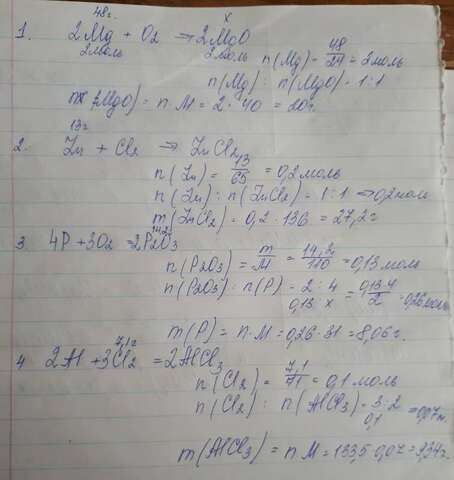 48г. x
1. 2Mg + O2 → 2MgO
2моль 2моль n(Mg) = 48/24 = 2моль
n(Mg) : n(MgO) = 1:1
m(2MgO) = n·M = 2 · 40 = 80г
13г
2. Zn + Cl2 → ZnCl2
n(Zn) = 13/65 = 0,2 моль
n(Zn) : n(ZnCl2) = 1:1 → 0,2 моль
m(ZnCl2) = 0,2 · 136 = 27,2г
14,2г
3 4P + 3O2 = 2P2O3
n(P2O3) = m/M = 14,2/110 = 0,13 моль
n(P2O3) : n(P) = 2 : 4
0,13 x = 0,13·4/2 = 0,26моль
m(P) = n·M = 0,26 · 31 = 8,06г.
7,1г
4 2Al + 3Cl2 = 2AlCl3
n(Cl2) = 7,1/71 = 0,1 моль
n(Cl2) : n(AlCl3) = 3:2
0,1 = 0,07м.
m(AlCl3) = n M = 133,5·0,07 = 9,34г.